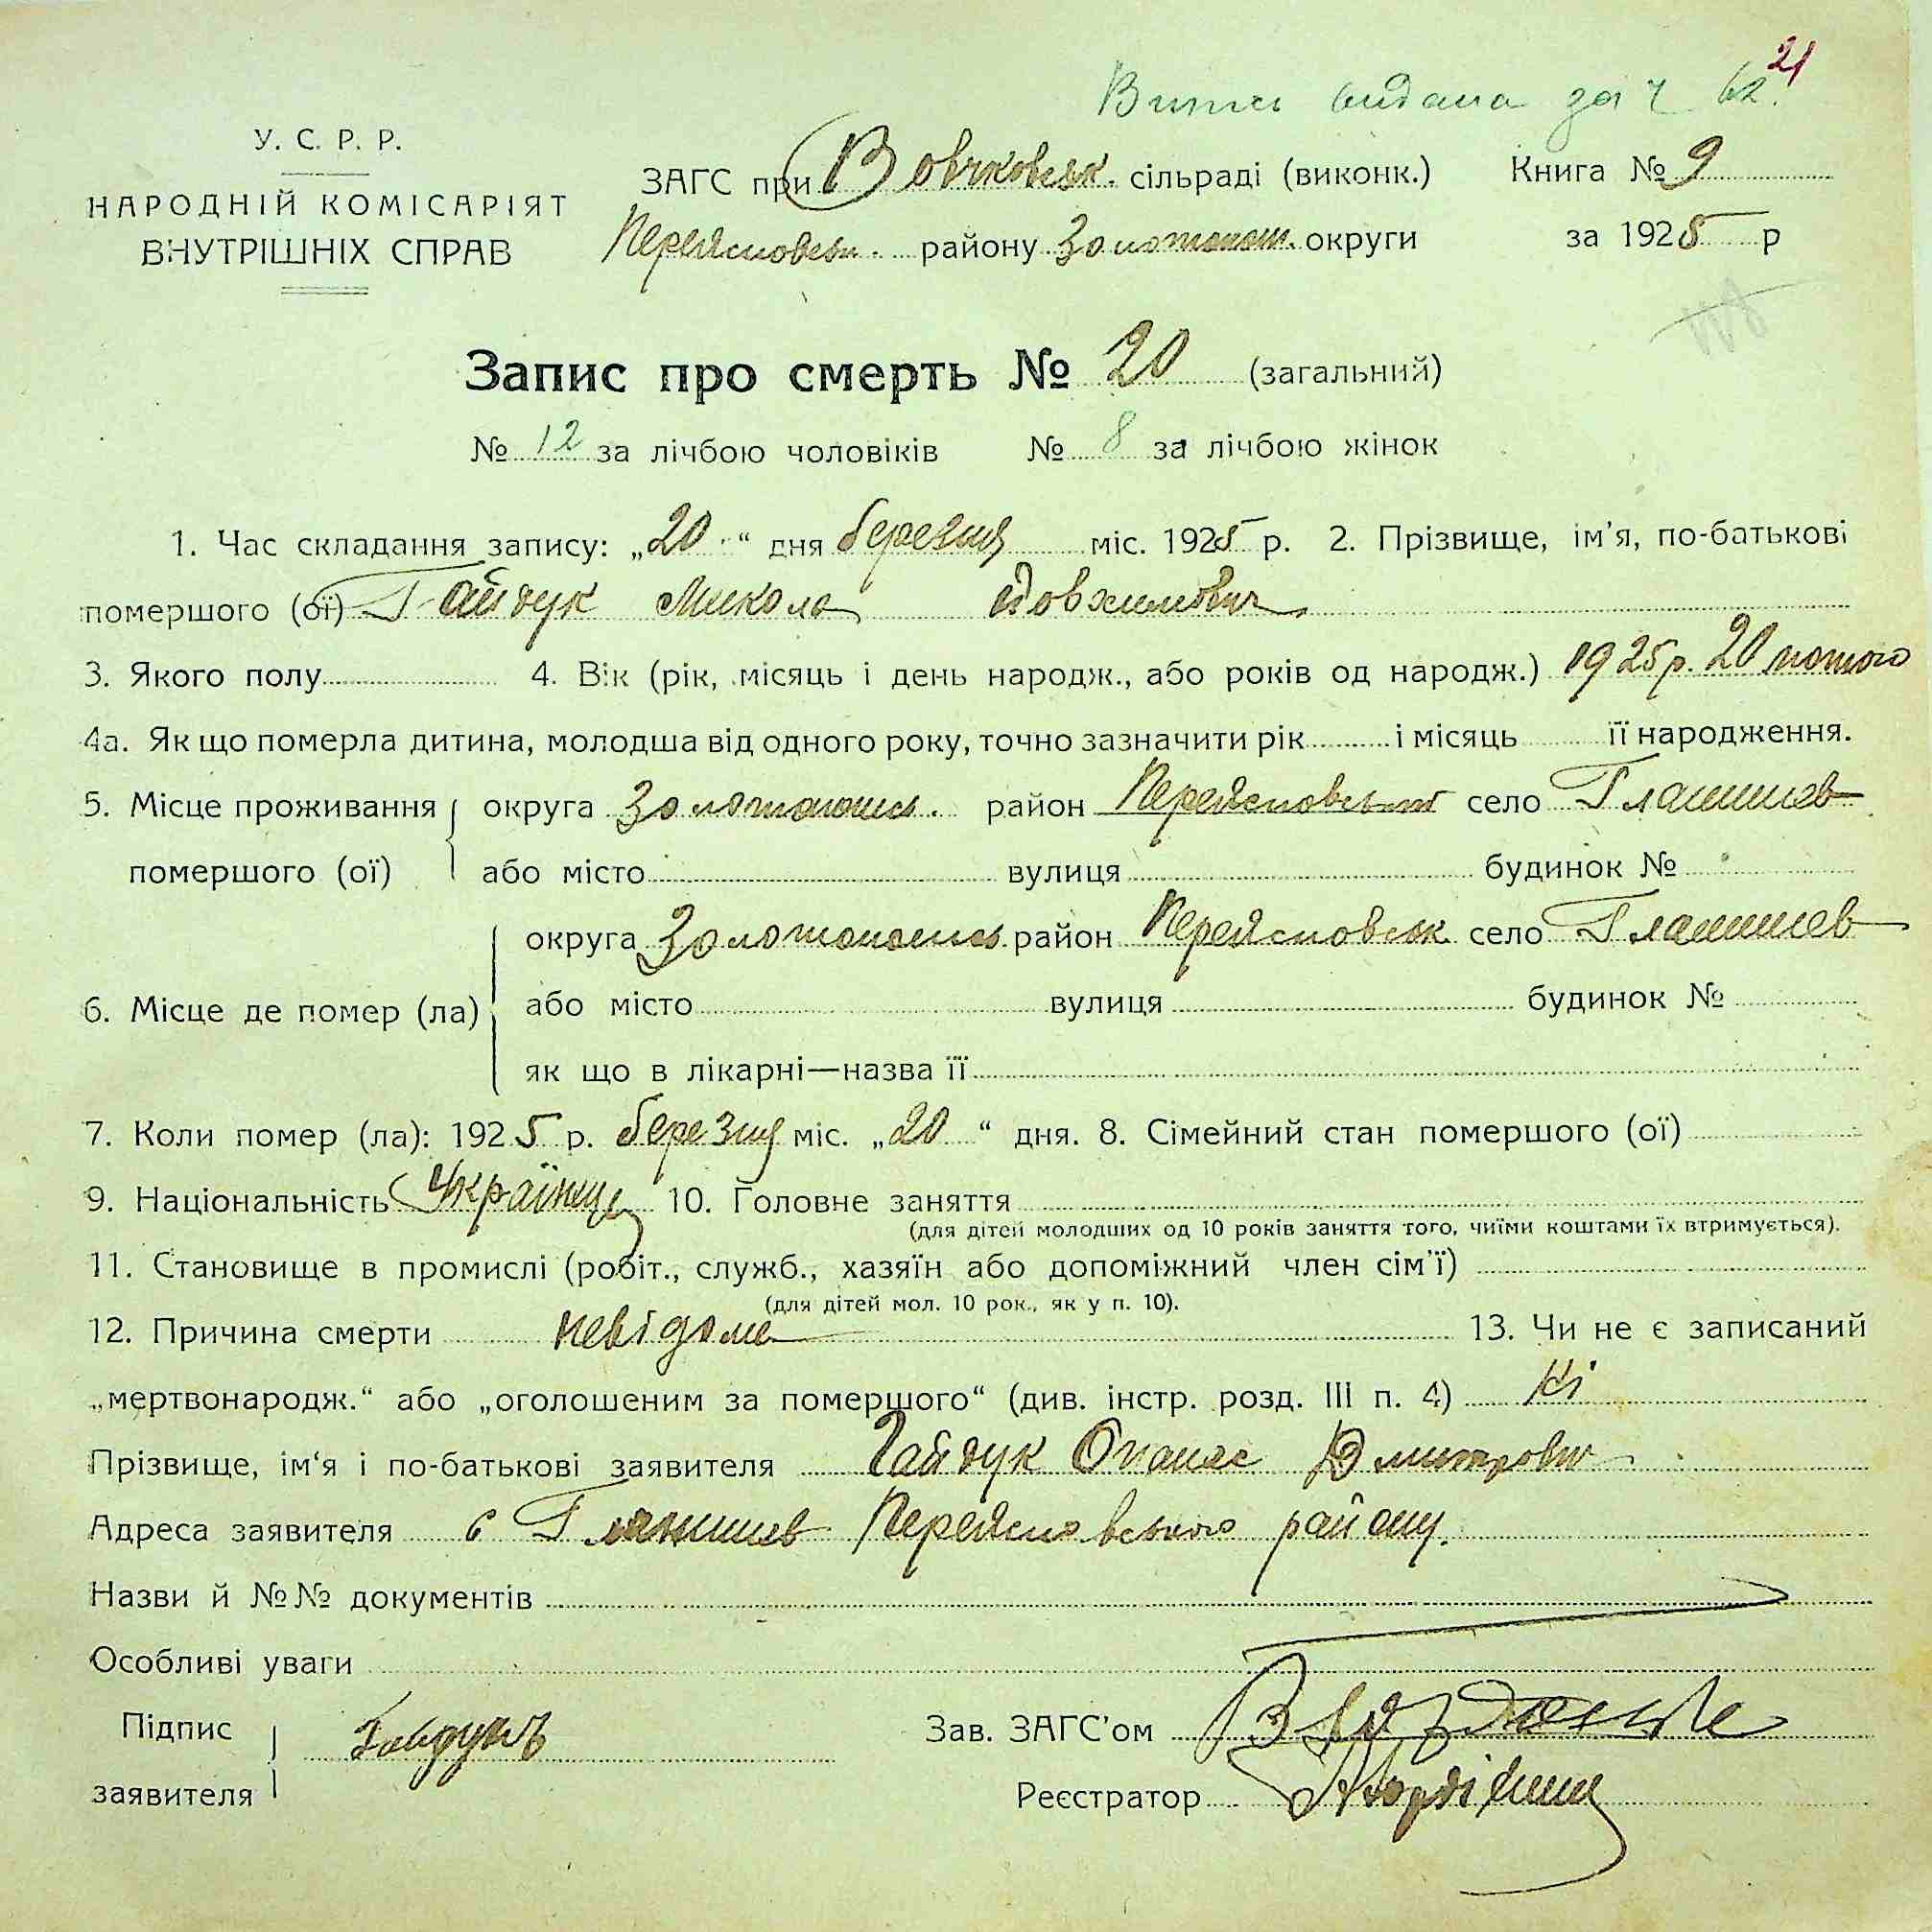 21
Витяг видана за ч 62.
У. С. Р. Р.
НАРОДНІЙ КОМІСАРІЯТ
ВНУТРІШНІХ СПРАВ
ЗАГС при Вовчковськ. сільраді (виконк.) Книга № 9
Переясловськ. району Золотоніш. округи за 1925 р
Запис про смерть № 20 (загальний)
№ 12 за лічбою чоловіків № 8 за лічбою жінок
1. Час складання запису: „20“ дня березня міс. 1925 р. 2. Прізвище, ім'я, по-батькові
помершого (ої) Гайдук Микола
3. Якого полу 4. Вік (рік, місяць і день народж., або років од народж.) 1925 р. 20 лютого
4а. Як що померла дитина, молодша від одного року, точно зазначити рік і місяць її народження.
5. Місце проживання округа Золотоніськ. район Переясловський село Гланишев
помершого (ої) або місто вулиця будинок №
округа Золотоніськ. район Переясловськ село Гланишев
6. Місце де помер (ла) або місто вулиця будинок №
як що в лікарні—назва її
7. Коли помер (ла): 1925 р. березня міс. „20“ дня. 8. Сімейний стан помершого (ої)
9. Національність Українець 10. Головне заняття
(для дітей молодших од 10 років заняття того, чиїми коштами їх втримується).
11. Становище в промислі (робіт., служб., хазяїн або допоміжний член сім'ї)
(для дітей мол. 10 рок., як у п. 10).
12. Причина смерти невідома 13. Чи не є записаний
„мертвонародж.“ або „оголошеним за помершого“ (див. інстр. розд. III п. 4) Ні
Прізвище, ім'я і по-батькові заявителя Гайдук Опанас Дмитрович
Адреса заявителя с Гланишев Переясловського району.
Назви й №№ документів
Особливі уваги
Підпис
заявителя Гайдукъ
Зав. ЗАГС'ом
Реєстратор